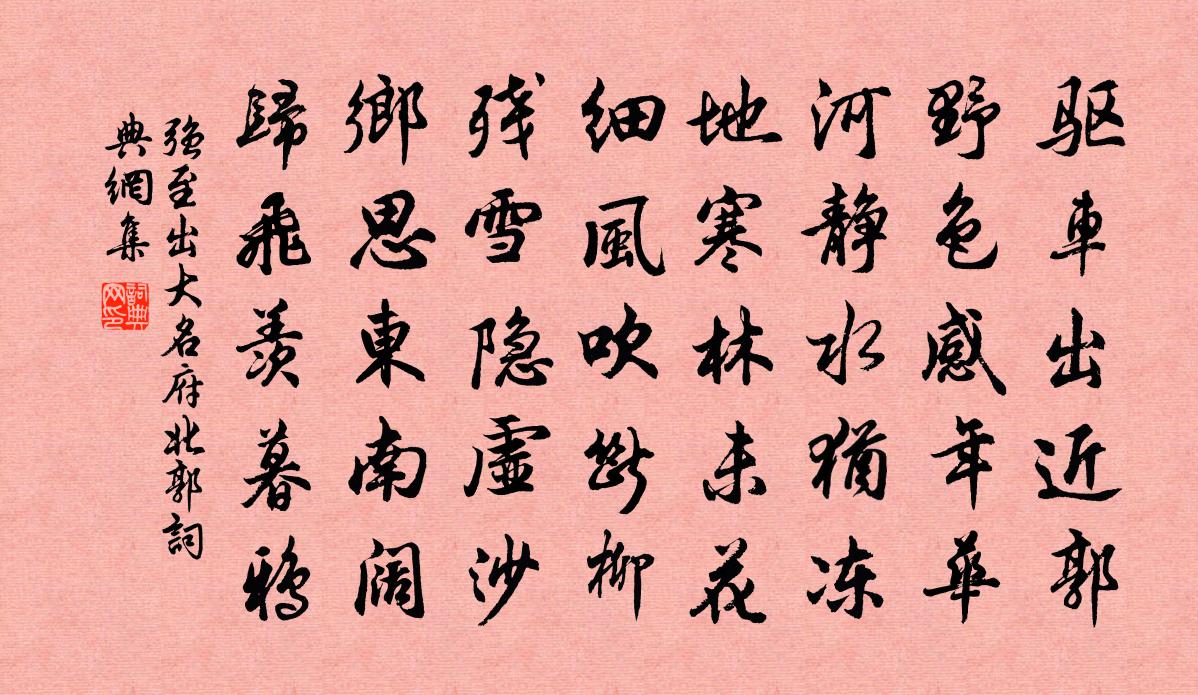 驱車出近郭
野色感年華
河静水猶冻
地寒林未花
细風吹斷柳
残雪隐虚沙
鄉思東南阔
歸飛羨暮鴉
強至出大名府北郭詞
典網集
詞典网印